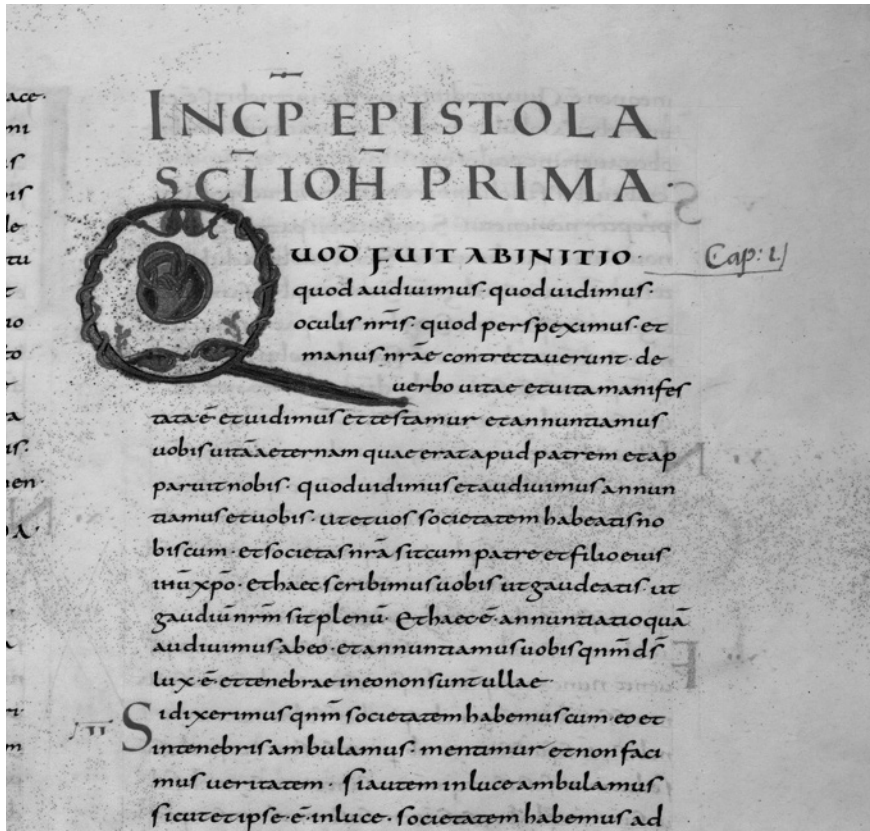 INCP̄ EPISTOLA
SCĪ IOH̄ PRIMA·
QUOD FUIT AB INITIO· Cap: 1.
quod audiuimus· quod uidimus·
oculis nr̄is· quod perspeximus· et
manus nrāe contrectauerunt· de
uerbo uitae et uita manifes
tata· ē· et uidimus et testamur et annuntiamus
uobis uitā aeternam quae erat apud patrem et ap
paruit nobis· quod uidimus et audiuimus annun
tiamus et uobis· ut et uos societatem habeatis no
biscum· et societas nrā sit cum patre et filio eius
ihū xpō· et haec scribimus uobis ut gaudeatis· ut
gaudiū nrm̄ sit plenū· Et haec· ē· annuntiatio quā
audiuimus ab eo· et annuntiamus uobis qnm̄ ds̄
lux· ē· et tenebrae in eo non sunt ullae
II Si dixerimus qnm̄ societatem habemus cum eo et
in tenebris ambulamus· mentimur et non faci
mus ueritatem· si autem in luce ambulamus
sicut et ipse· ē· in luce· societatem habemus ad